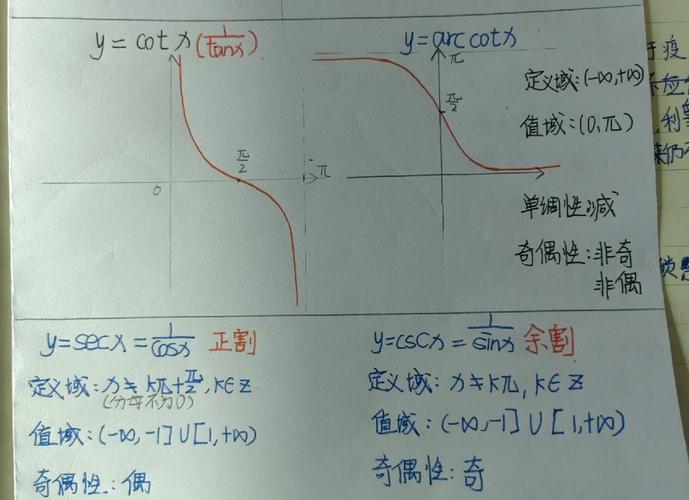 y = cot x (1/tanx)
π/2
π
0
y = arc cotx
π
π/2
定义域:(-∞,+∞)
值域:(0,π)
单调性:减
奇偶性:非奇
非偶
y=secx=1/cosx 正割
定义域:x≠kπ+π/2,k∈Z
(分母不为0)
值域:(-∞,-1]∪[1,+∞)
奇偶性:偶
y=cscx=1/sinx 余割
定义域:x≠kπ,k∈Z
值域:(-∞,-1]∪[1,+∞)
奇偶性:奇
疫
利